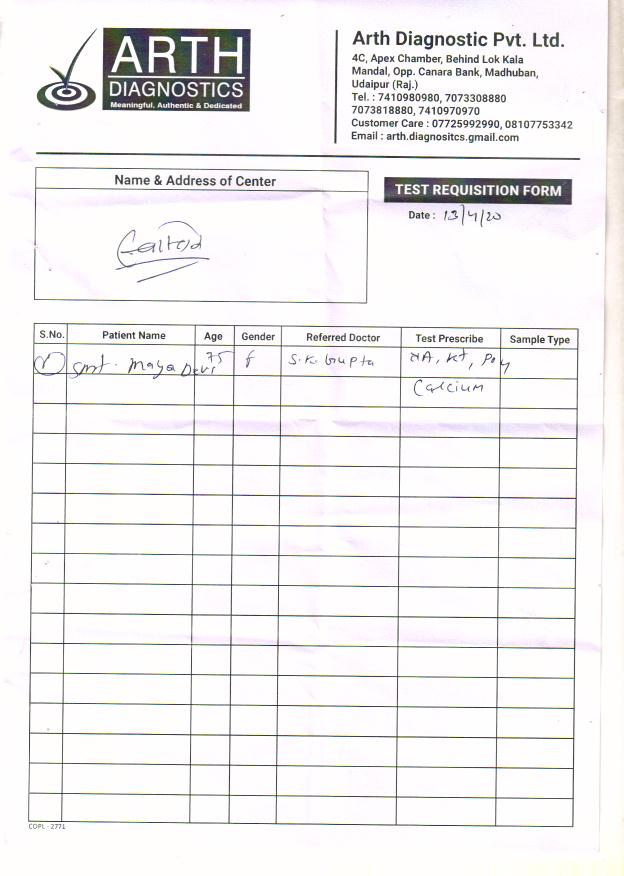 ARTH
DIAGNOSTICS
Meaningful, Authentic & Dedicated
Arth Diagnostic Pvt. Ltd.
4C, Apex Chamber, Behind Lok Kala
Mandal, Opp. Canara Bank, Madhuban,
Udaipur (Raj.)
Tel. : 7410980980, 7073308880
7073818880, 7410970970
Customer Care : 07725992990, 08107753342
Email : arth.diagnositcs.gmail.com
Name & Address of Center
TEST REQUISITION FORM
Date : 13/4/20
S.No. Patient Name Age Gender Referred Doctor Test Prescribe Sample Type
1 Smt. Maya Devi 75 f S.K. Gupta NA, K+,
Calcium
COPL - 2771